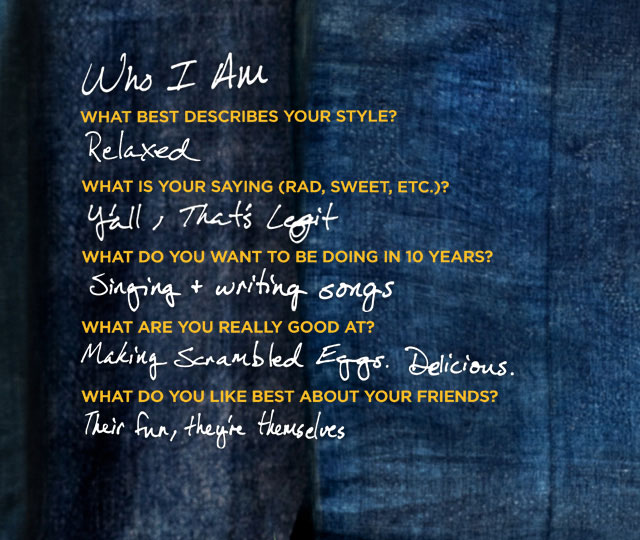 Who I Am
WHAT BEST DESCRIBES YOUR STYLE?
Relaxed
WHAT IS YOUR SAYING (RAD, SWEET, ETC.)?
Y'all, That's Legit
WHAT DO YOU WANT TO BE DOING IN 10 YEARS?
Singing + writing songs
WHAT ARE YOU REALLY GOOD AT?
Making Scrambled Eggs. Delicious.
WHAT DO YOU LIKE BEST ABOUT YOUR FRIENDS?
Their fun, they're themselves